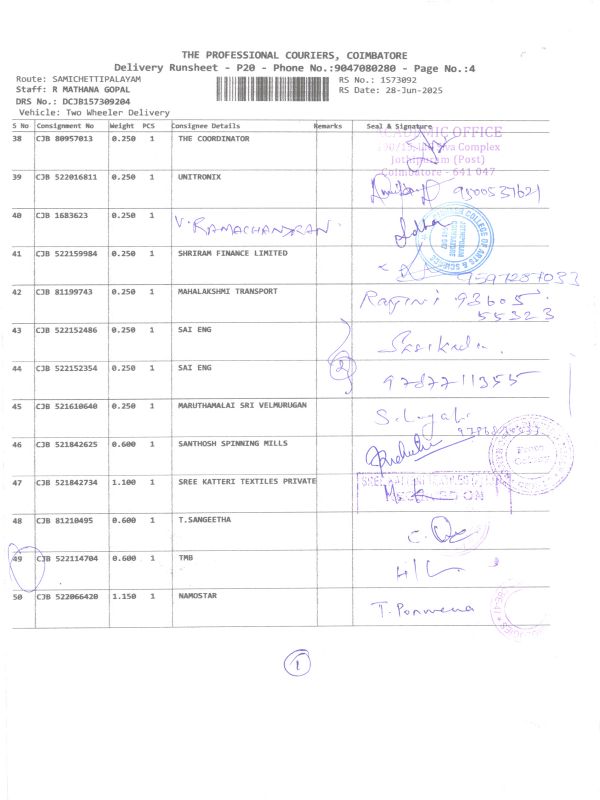 THE PROFESSIONAL COURIERS, COIMBATORE
Delivery Runsheet - P20 - Phone No.:9047080280 - Page No.:4
Route: SAMICHETTIPALAYAM
RS No.: 1573092
Staff: R MATHANA GOPAL
RS Date: 28-Jun-2025
DRS No.: DCJB157309204
Vehicle: Two Wheeler Delivery
S No Consignment No Weight PCS Consignee Details Remarks Seal & Signature
38 CJB 80957013 0.250 1 THE COORDINATOR
OFFICE
Complex
Jothipuram (Post)
Coimbatore - 641 047
39 CJB 522016811 0.250 1 UNITRONIX 9500537621
40 CJB 1683623 0.250 1 V. RAMACHANDRAN.
COLLEGE OF ARTS & SCIENCE
41 CJB 522159984 0.250 1 SHRIRAM FINANCE LIMITED
42 CJB 81199743 0.250 1 MAHALAKSHMI TRANSPORT Ragini 93605
55323
43 CJB 522152486 0.250 1 SAI ENG
44 CJB 522152354 0.250 1 SAI ENG 2 9787711355
45 CJB 521610640 0.250 1 MARUTHAMALAI SRI VELMURUGAN
46 CJB 521842625 0.600 1 SANTHOSH SPINNING MILLS
47 CJB 521842734 1.100 1 SREE KATTERI TEXTILES PRIVATE
48 CJB 81210495 0.600 1 T.SANGEETHA
49 CJB 522114704 0.600 1 TMB
50 CJB 522066420 1.150 1 NAMOSTAR
1